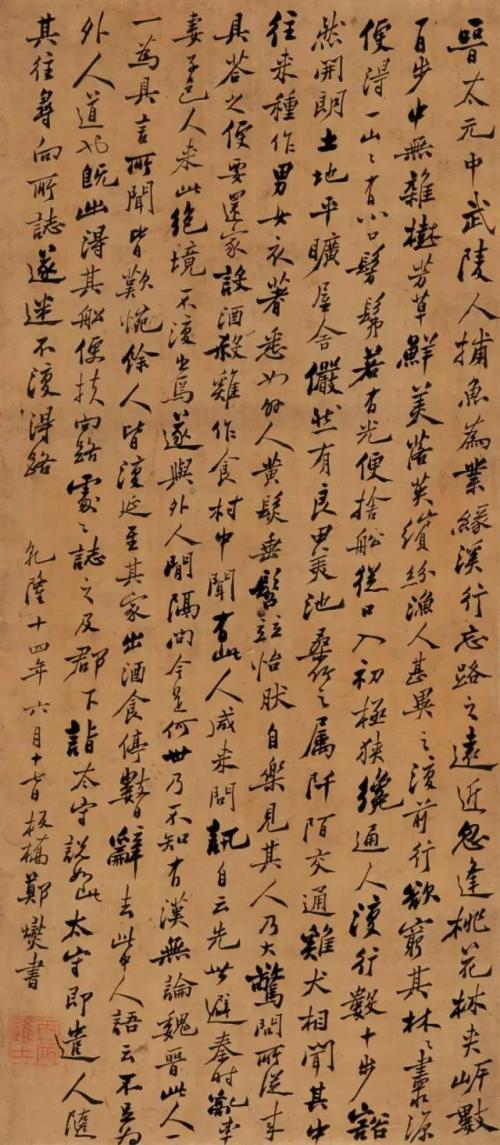 晉太元中武陵人捕魚為業緣溪行忘路之遠近忽逢桃花林夾岸數
百步中無雜樹芳草鮮美落英繽紛漁人甚異之復前行欲窮其林々盡源
便得一山々有小口髣髴若有光便捨船從口入初極狹纔通人復行數十步豁
然開朗土地平曠屋舍儼然有良田美池桑竹之属阡陌交通雞犬相聞其中
往来種作男女衣著悉如外人黄髮垂髫竝怡肰自樂見其人乃大驚問所從来
具答之便要還家設酒殺雞作食村中聞有此人咸来問訊自云先世避秦時亂率
妻子邑人来此絶境不復出焉遂與外人間隔問今是何世乃不知有漢無論魏晉此人一
一為具言所聞皆歎惋餘人皆復延至其家出酒食停數日辭去此中人語云不足為
外人道也既出得其船便扶向路處々誌之及郡下詣太守說如此太守即遣人隨
其往尋向所誌遂迷不復得路
乾隆十四年六月十七日板橋鄭燮書
丙辰進士